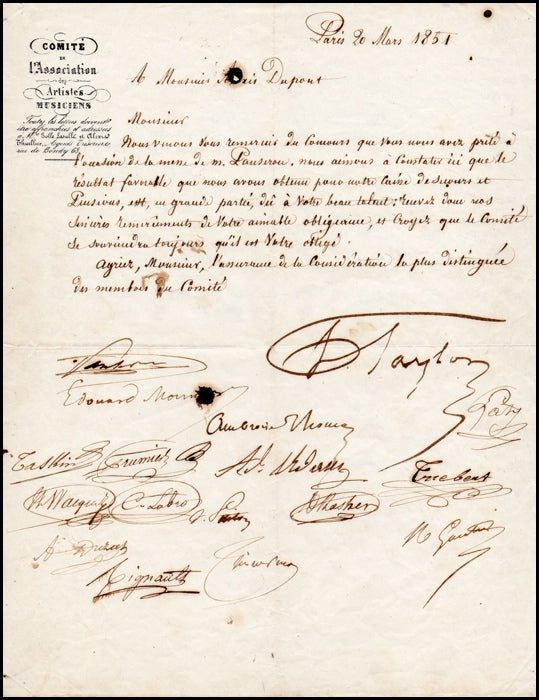 Paris 20 Mars 1851
COMITÉ
DE
l'Association
des
Artistes
MUSICIENS
Toutes les lettres doivent
être affranchies et adressées
à Mrs Bolle Lasalle et Alexis
Thuillier, Agens Trésoriers
rue de Bondy 68
A Monsieur Alexis Dupont
Monsieur
Nous venons vous remercier du Concours que Vous nous avez prêté à
l'occasion de la messe de m. Panseron. nous aimons à Constater ici que le
résultat favorable que nous avons obtenu pour notre Caisse de Secours et
Pensions, est, en grande partie, dû à Votre beau talent; recevez donc nos
Sincères remerciments de Votre aimable obligeance, et Croyez que le Comité
se souviendra toujours qu'il est Votre obligé.
Agréez, Monsieur, l'assurance de la Considération la plus distinguée
des membres du Comité
Taylor
Panseron
Edouard Monnais
Ambroise Thomas
Taskin Prumier Triebert
C. Labro
A Thasher
Gautier
Tignault